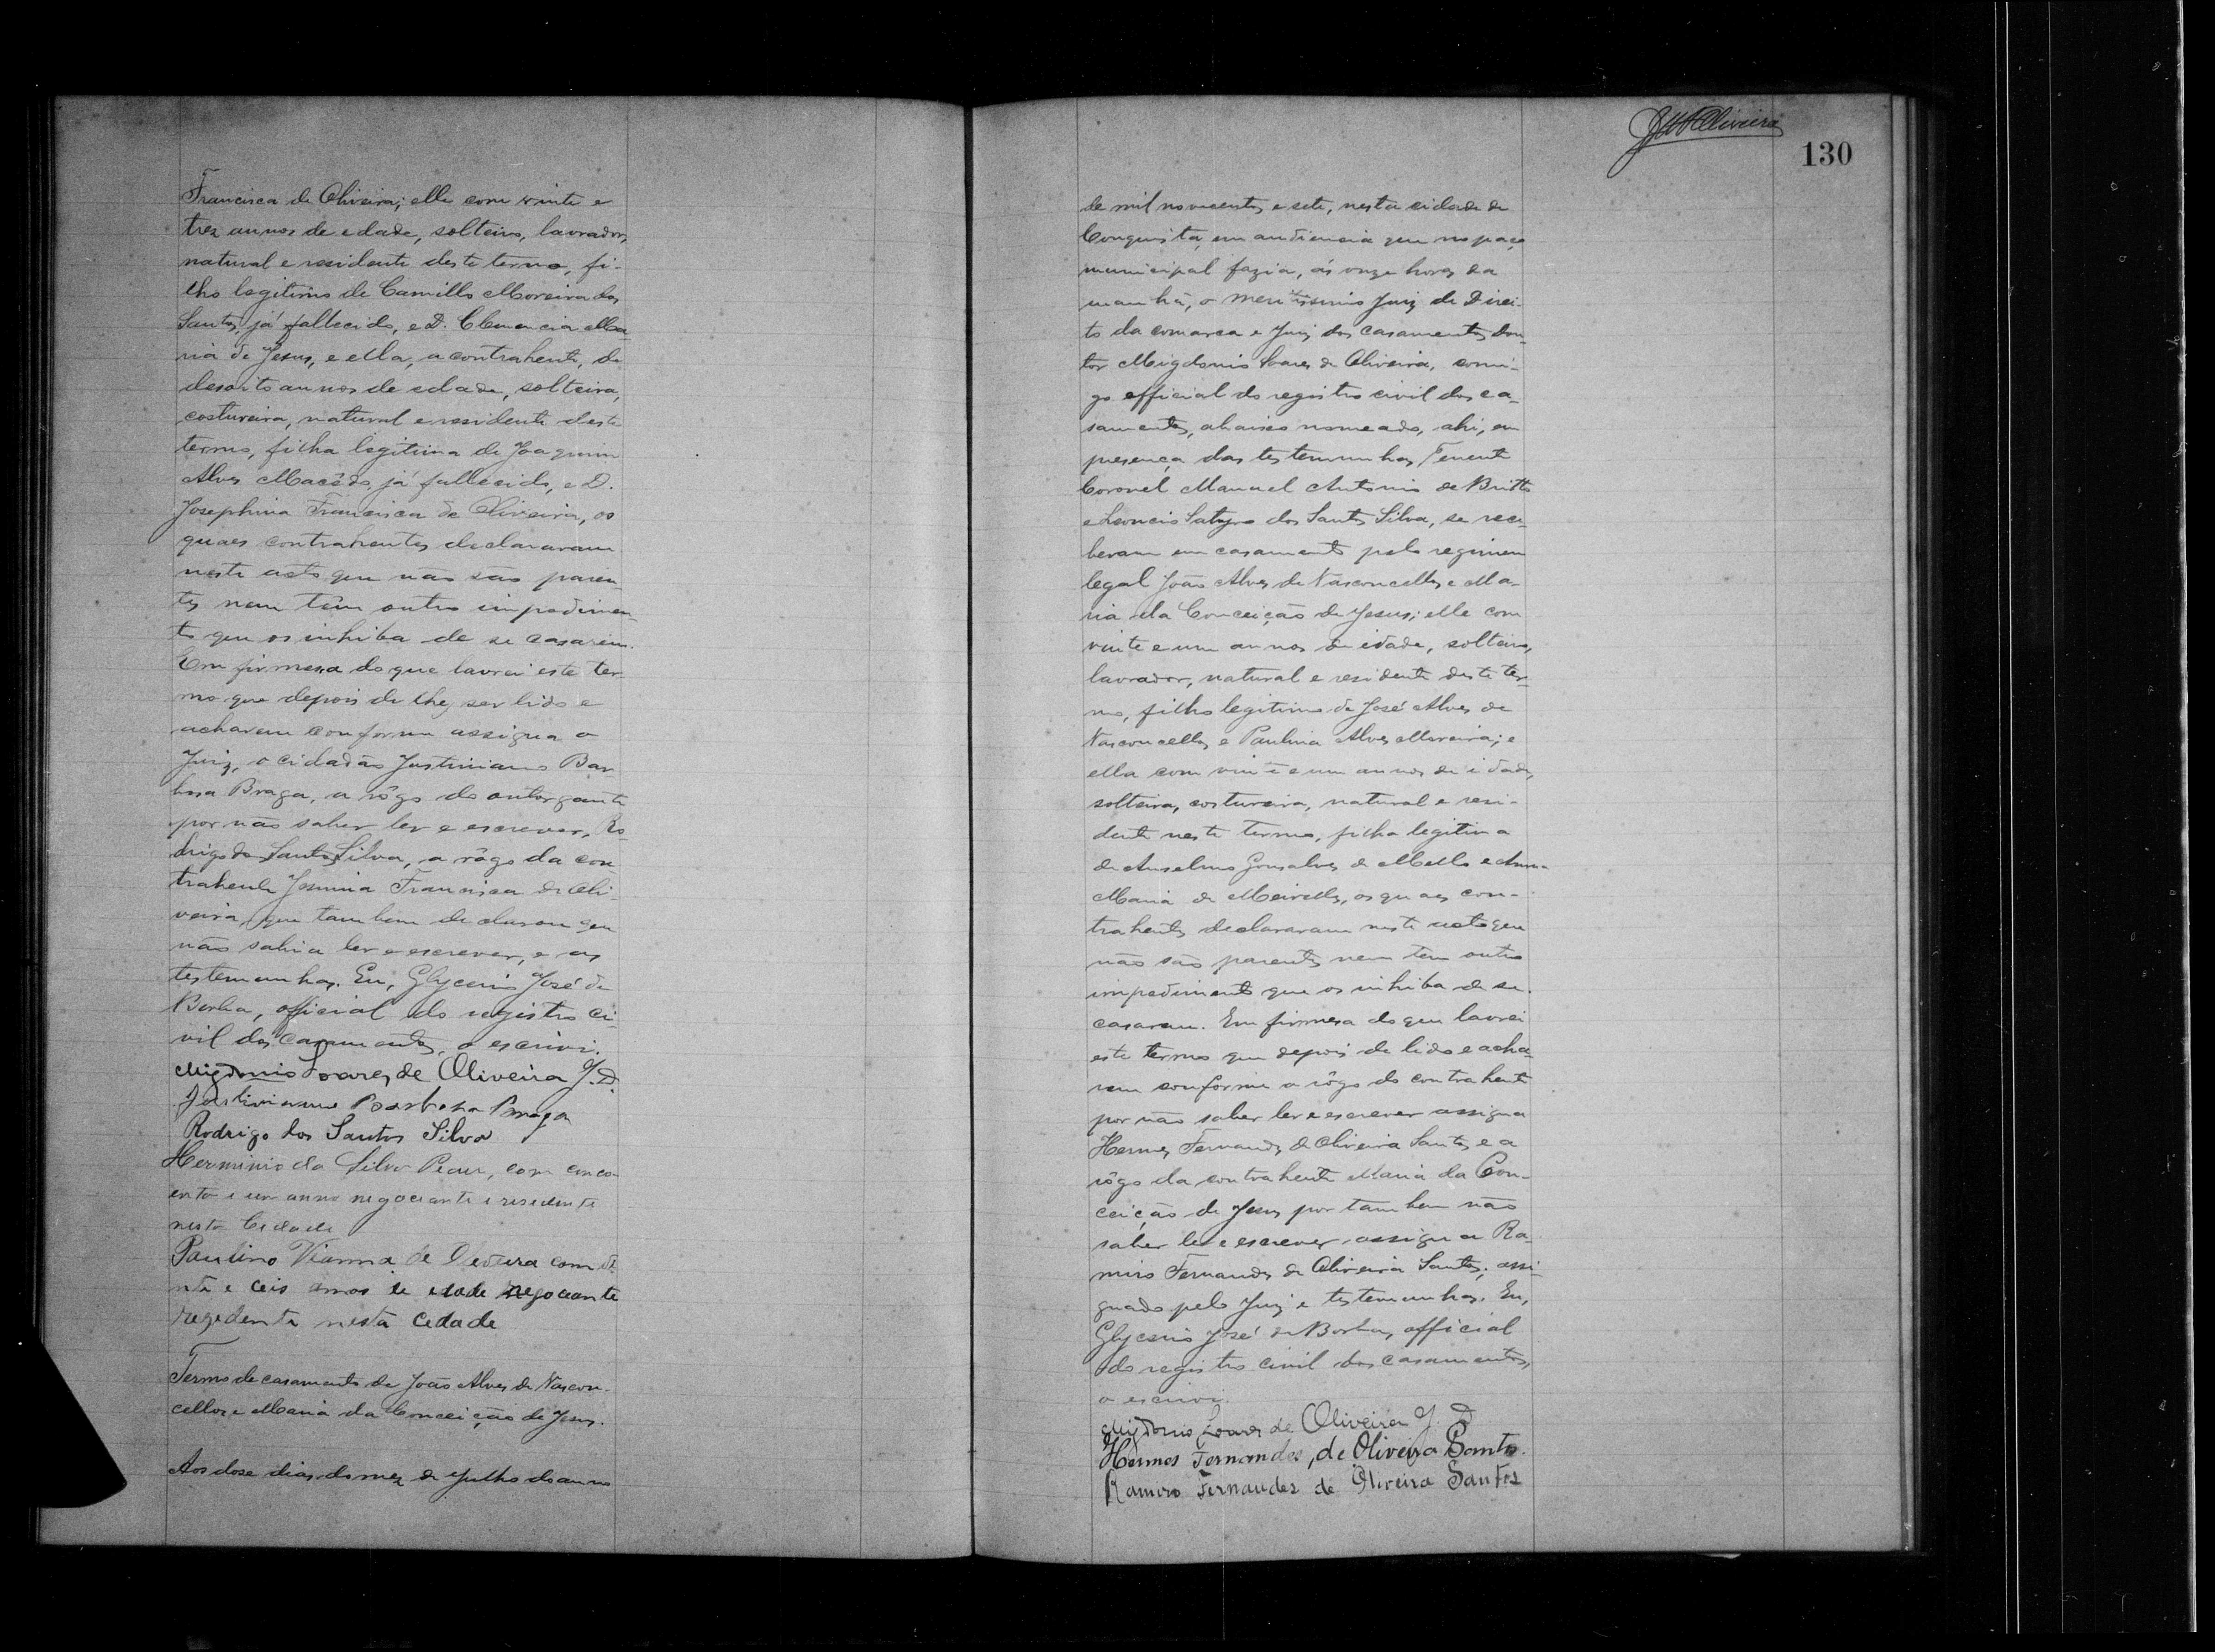 Francisca de Oliveira; elle com vinte e
trez annos de edade, solteiro, lavrador,
natural e residente deste termo, fi-
lho legitimo de Camillo Moreira dos
Santos, já fallecido, e D. Clemencia Ma
ria de Jesus, e ella, a contrahente, de
desoito annos de edade, solteira,
costureira, natural e residente deste
termo, filha legitima de Joaquim
Alves Macêdo, já fallecido, e D.
Josephina Francisca de Oliveira, os
quaes contrahentes declararam
neste acto que não são paren-
tes nem têm outro impedimen-
to que os inhiba de se casarem.
Em firmesa do que lavrei este ter
mo que depois de lhes ser lido e
acharem conforme assigna o
Juiz, o cidadão Justiniano Bar
bosa Braga, a rôgo do outorgante
por não saber ler e escrever, Ro
drigo dos Santos Silva, a rôgo da con
trahente Francisca de Oli-
veira, que tambem declarou que
não sabia ler e escrever, e as
testemunhas. Eu, Glycerio José de
Borba, official do registro ci-
vil dos casamentos, o escrivi.
Migdonio Soares de Oliveira J. D.
Justiniano Barbosa Braga
Rodrigo dos Santos Silva
Herminio da Silva com
e um anno negociante e residente
nesta Cidade
Paulino Vianna de Oliveira com vi
nte e ceis annos de edade negoceante
rezedente nesta Cedade
Termo de casamento de João Alves de Vascon-
cellos e Maria da Conceição de Jesus.
Aos dose dias do mez de Julho do anno
130
de mil novecentos e sete, nesta cidade de
Conquista, em audiencia que no paço
municipal fazia, ás onze horas da
manhã, o meritissimo Juiz de Direi-
to da comarca e Juiz dos casamentos dou-
tor Migdonio Soares de Oliveira, comi-
go official do registro civil dos ca-
samentos, abaixo nomeado, ahi, em
presença das testemunhas Tenente
Coronel Manuel Antonio de Britto
e Leoncio Satyro dos Santos Silva, se rece-
beram em casamento pelo regimem
legal João Alves de Vasconcellos e Ma-
ria da Conceição de Jesus; elle com
vinte e um annos de idade, solteiro,
lavrador, natural e residente deste ter-
mo, filho legitimo de José Alves de
Vasconcellos e Paulina Alves Moreira; e
ella com vinte e um annos de idade,
solteira, costureira, natural e resi-
dente neste termo, filha legitima
de Anselmo Gonsalves de Mello e Anna
Maria de Meirelles, os quaes con-
trahentes declararam neste acto que
não são parentes nem têm outro
impedimento que os inhiba de se
casarem. Em firmesa do que lavrei
este termo que depois de lido e acha-
rem conforme a rôgo do contrahente
por não saber ler e escrever assigna
Hermes Fernandes de Oliveira Santos e a
rôgo da contrahente Maria da Con-
ceição de Jesus por tambem não
saber ler e escrever assigna Ra-
miro Fernandes de Oliveira Santos; assi-
gnado pelo Juiz e testemunhas. Eu,
Glycerio José de Borba, official
do registro civil dos casamentos,
o escrivi.
Migdonio Soares de Oliveira J. D
Hermes Fernandes, de Oliveira Santos.
Ramiro Fernandes de Oliveira Santos